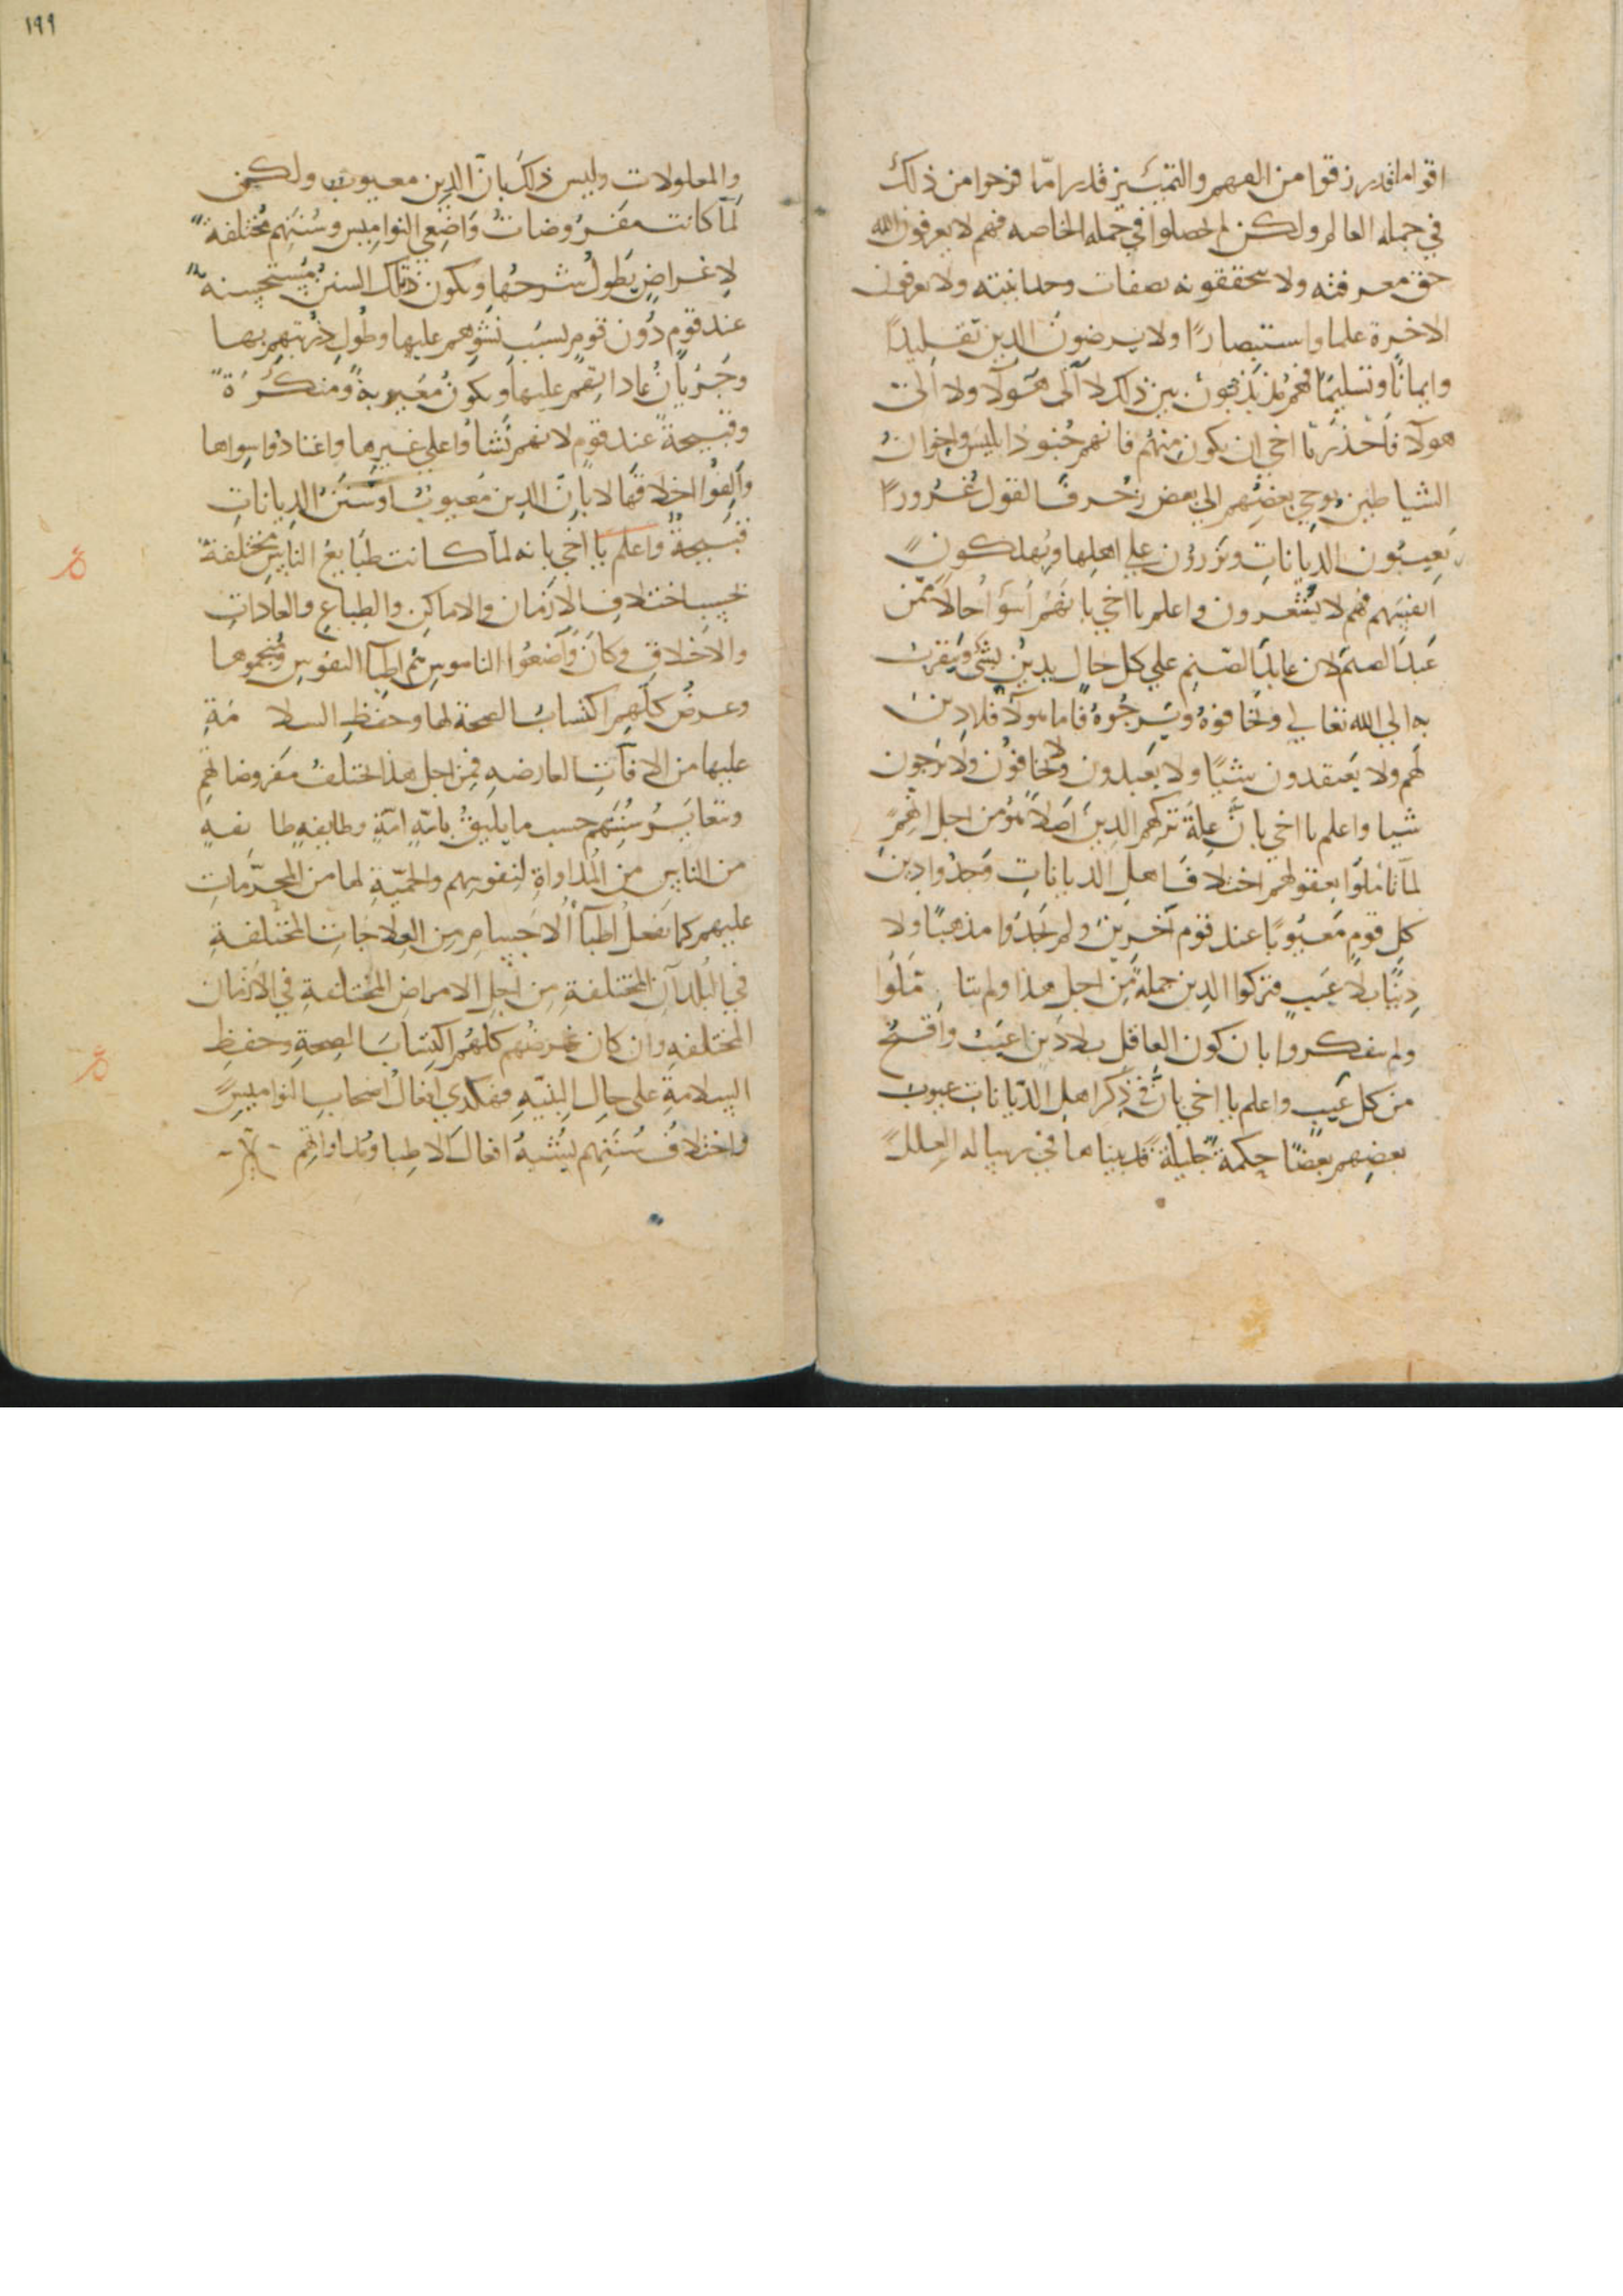 اقواما قد رزقوا من الفهم والتمييز قدرا مّا فرحوا من ذلك
في جمله العالم ولكن لم يحصلوا في جمله الخاصه فهم لا يعرفون الله
حق معرفته ولا يتحققونه بصفات وحدانيته ولا يعرفون
الاخرة علما واستبصارًا ولا يرضون الدين تقليدًا
وايمانًا وتسليمًا فهم مُذبذبون بين ذلك لا الى هؤلا ولا الى
هولا فاحذر يا اخي ان يكون منهم فانهم جنود ابليس واخوان
الشياطين يوحي بعضهم الي بعض زخرف القول غرورًا
يعيبون الديانات ويزرون علي اهلها ويهلكون
انفسهم فهم لا يشعرون واعلم يا اخي بانهم اسوأ حالاً ممّن
عَبدَ الصنم لان عابد الصنم علي كل حال يدين بشي ويتقرب
به الي الله تعالي ويخافوهُ ويرجُوهُ فاما هولا فلا دين
لهم ولا يعتقدون شيًا ولا يعبدون ولا يخافون ولا يرجون
شيا واعلم يا اخي بانّ علة تركهم الدين اصلاً هو من اجل انهم
لما تاملوا بعقولهم اختلاف اهل الديانات وجدوا دين
كل قوم معيُوبًا عند قوم آخرين ولم يجدوا مذهبًا ولا
دينًا بلا عيب فتركوا الدين جملة من اجل هذا ولم يتا ملوا
ولم يتفكروا بان كون العاقل بلا دين اعيب واقبح
من كل عيب واعلم يا اخي بان في ذكر اهل الديانات عيوب
بعضهم بعضًا حكمة جليلة قد بيناها في رساله العلل
١٩٩
والمعلولات وليس ذلك بانّ الدين معيوب ولكن
لمّا كانت مفروضات واضعي النواميس وسننهم مختلفة
لاغراض يطول شرحها ويكون تلك السنن مستحسنة
عند قوم دون قوم بسبب نشوهم عليها وطول دربتهم بها
وجريان عاداتهم عليها ويكون معيوبة ومنكرة
وقبيحة عند قوم لانهم نشاوا علي غيرها واعتادوا سواها
والفوا اخلاقها لا بانّ الدين معيوب او سنن الديانات
قبيحة واعلم يا اخي بانه لما كانت طبايع الناس مختلفة
بحسب اختلاف الازمان والاماكن والطباع والعادات
والاخلاق وكان واضعوا الناموس هم اطبا النفوس ومنجموها
وغرض كلهم اكتساب الصحة لها وحفظ السلا مة
عليها من الافات العارضه فمن اجل هذا اختلف مفروضاتهم
وتغاير سُننهم حسب ما يليق بامّه امّة وطايفه طا يفه
من الناس من المُداواة لنفوسهم والحميّة لها من المحرّمات
عليهم كما تفعل اطبّا الاجسام من العلاجات المختلفة
في البلدان المختلفة من اجل الامراض المختلفة في الازمان
المختلفه وان كان غرضهم كلهم اكتساب الصحة وحفظ
السلامة على حال البنيّه فهكذي افعال اصحاب النواميس
واختلاف سننهم يشبه افعال الاطبا ومداواتهم